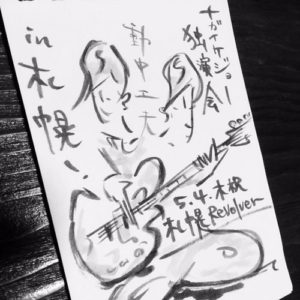 ナガイケジョー
独演会!
in 札幌
5.4.木祝
札幌 Revolver